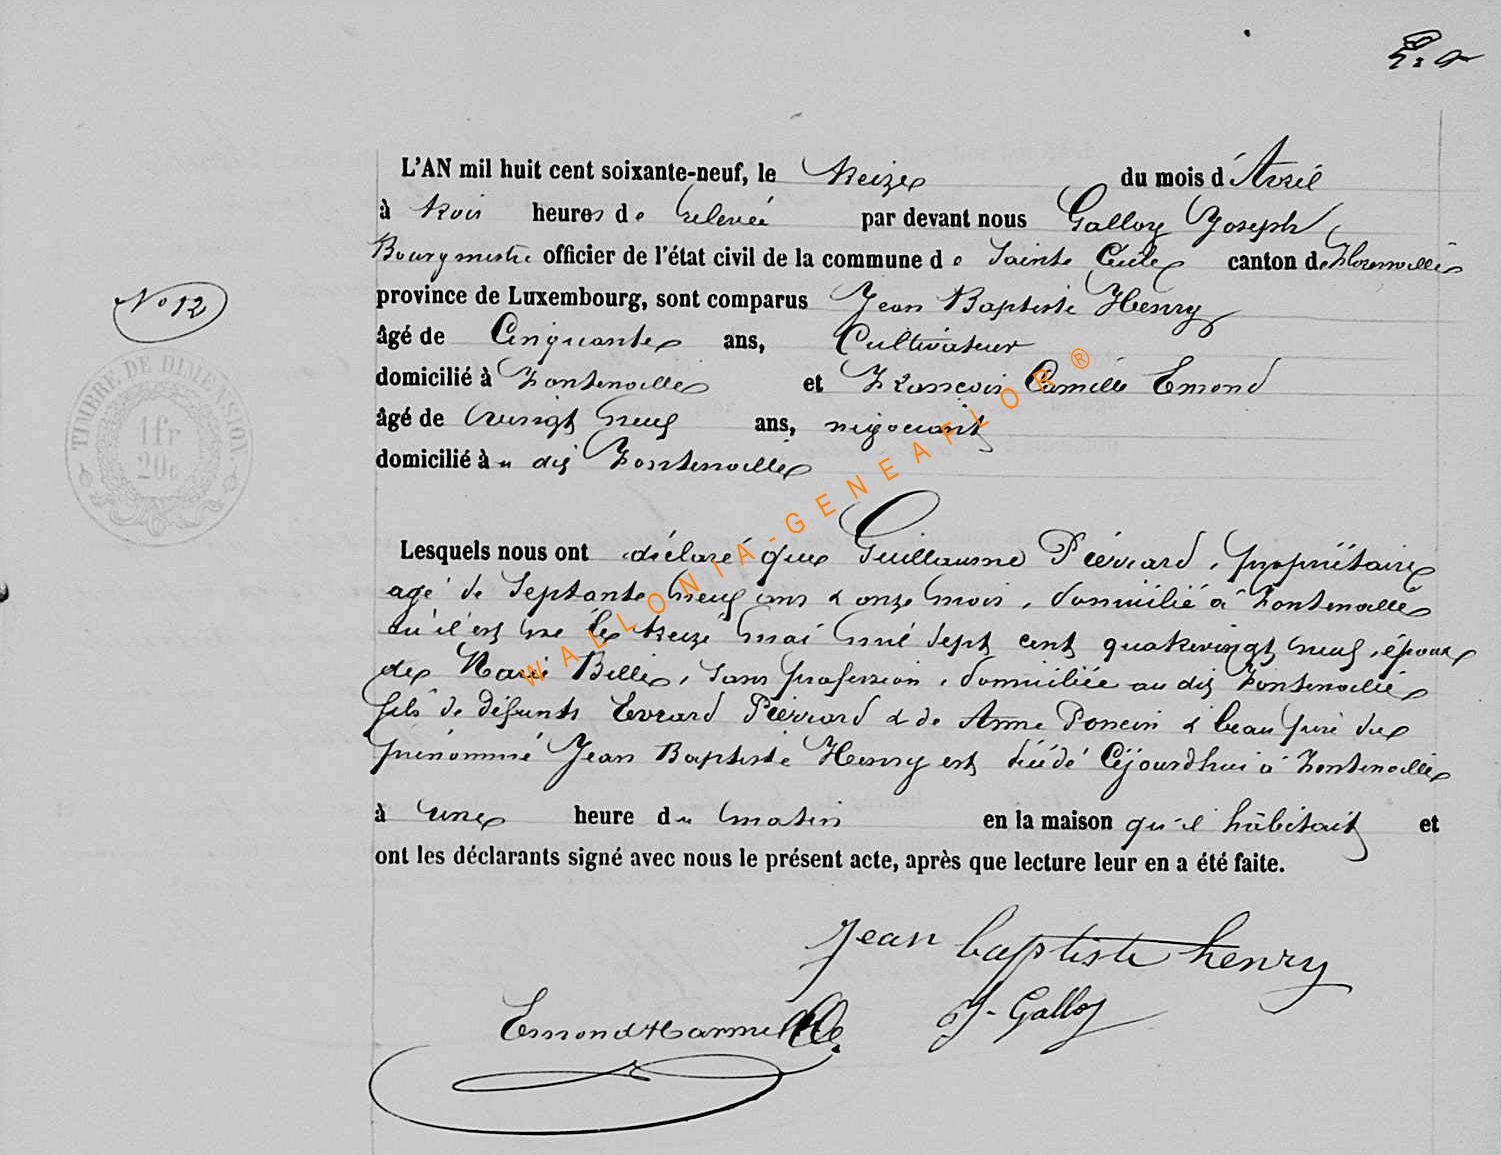 L'AN mil huit cent soixante-neuf, le treize du mois d'Avril
à trois heures de relevée par devant nous Galloy Joseph
Bourgmestre officier de l'état civil de la commune de Sainte Cécile canton de Florenville
province de Luxembourg, sont comparus Jean Baptiste Henry
N° 12
âgé de Cinquante ans, Cultivateur
domicilié à Fontenoille et François Camille Emond
TIMBRE DE DIMENSION
1 fr
20c
âgé de vingt neuf ans, négociant
domicilié à u dit Fontenoille
WALLONIA-GENEAFLOR®
Lesquels nous ont déclaré que Guillaume Piérrard, propriétaire
agé de Septante neuf ans & onze mois, domicilié à Fontenoille
où il est né le treize mai mil sept cent quatrevingt neuf, époux
de Marie Bellie, sans profession, domiciliée au dit Fontenoille
fils de défunts Evrard Piérrard & de Anne Poncin & beau père du
prénommé Jean Baptiste Henry est décédé Cejourdhui à Fontenoille
à une heure du matin en la maison qu'il habitait et
ont les déclarants signé avec nous le présent acte, après que lecture leur en a été faite.
Jean baptiste henry
Emond J. Galloy